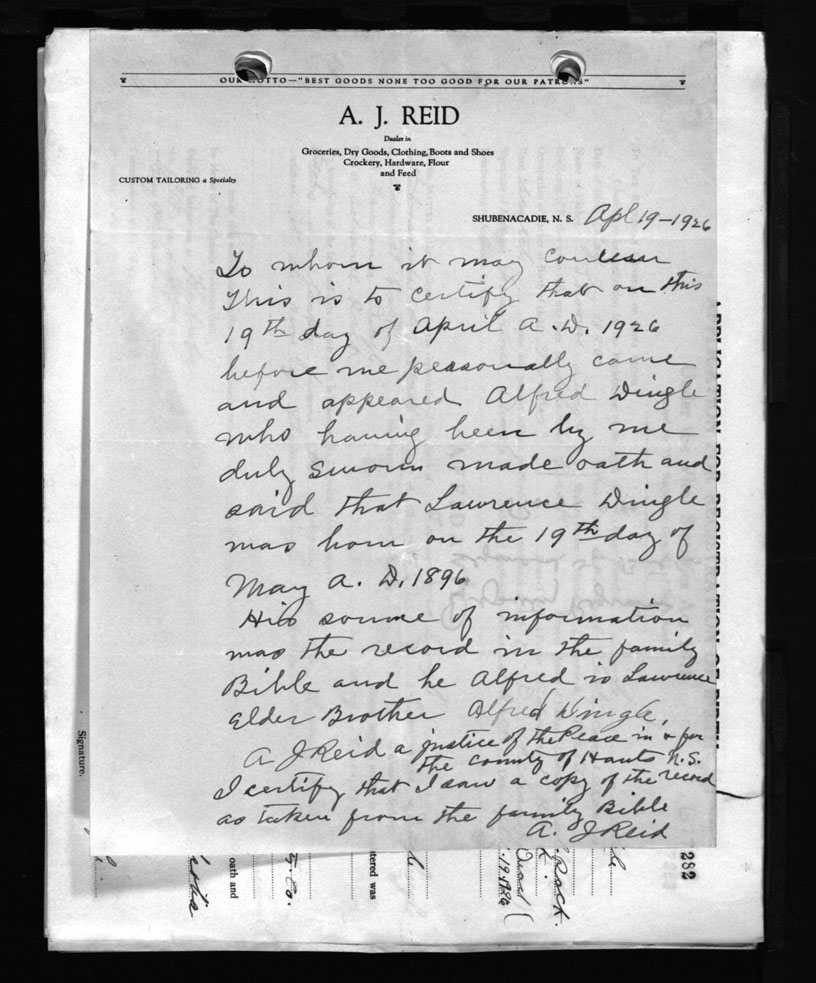 OUR MOTTO—"BEST GOODS NONE TOO GOOD FOR OUR PATRONS"
A. J. REID
Dealer in
Groceries, Dry Goods, Clothing, Boots and Shoes
Crockery, Hardware, Flour
and Feed
CUSTOM TAILORING a Specialty
SHUBENACADIE, N. S. Apl 19-1926
To whom it may concern
This is to certify that on this
19th day of April A.D. 1926
before me personally came
and appeared Alfred Dingle
who having been by me
duly sworn made oath and
said that Lawrence Dingle
was born on the 19th day of
May A. D. 1896
His source of information
was the record in the family
Bible and he Alfred is Lawrence
Elder Brother Alfred Dingle.
A J Reid a justice of the Peace in & for
the county of Hants N.S.
I certify that I saw a copy of the record
as taken from the family Bible
A. J Reid
APPLICATION FOR REGISTRATION OF BIRTH
Signature.
oath and
ty. Co.
tered was
282